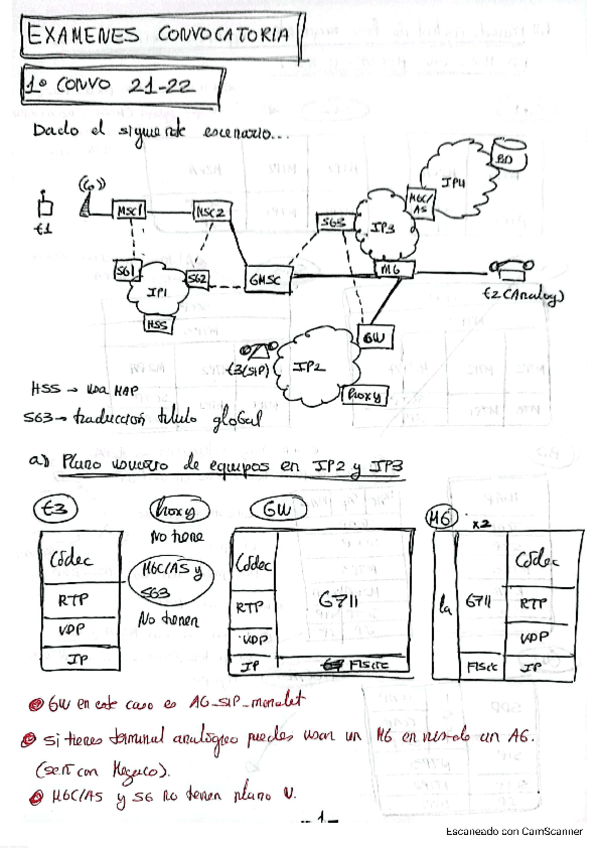 EXAMENES CONVOCATORIA
1º CONVO 21-22
Dado el siguiente escenario...
BD
IP4
MGC/
AS
MSC1
MSC2
SG3
IP3
t1
SG1
SG2
GMSC
MG
IP1
t2 (Analog)
HSS
GW
t3(SIP)
IP2
Proxy
HSS → usa MAP
SG3 → traducción título global
a) Plano usuario de equipos en IP2 y IP3
t3
Proxy
GW
MG x2
No tiene
Códec
MGC/AS y
SG3
Códec
G711
la
G711
Códec
RTP
No tienen
RTP
RTP
UDP
UDP
UDP
IP
IP
Físic
Físic
IP
GW en este caso es AG_SIP_
si tienes terminal analógico puedes usar un MG en vez de un AG.
(será con Megaco).
MGC/AS y SG no tienen plano U.
- 1 -
Escaneado con CamScanner